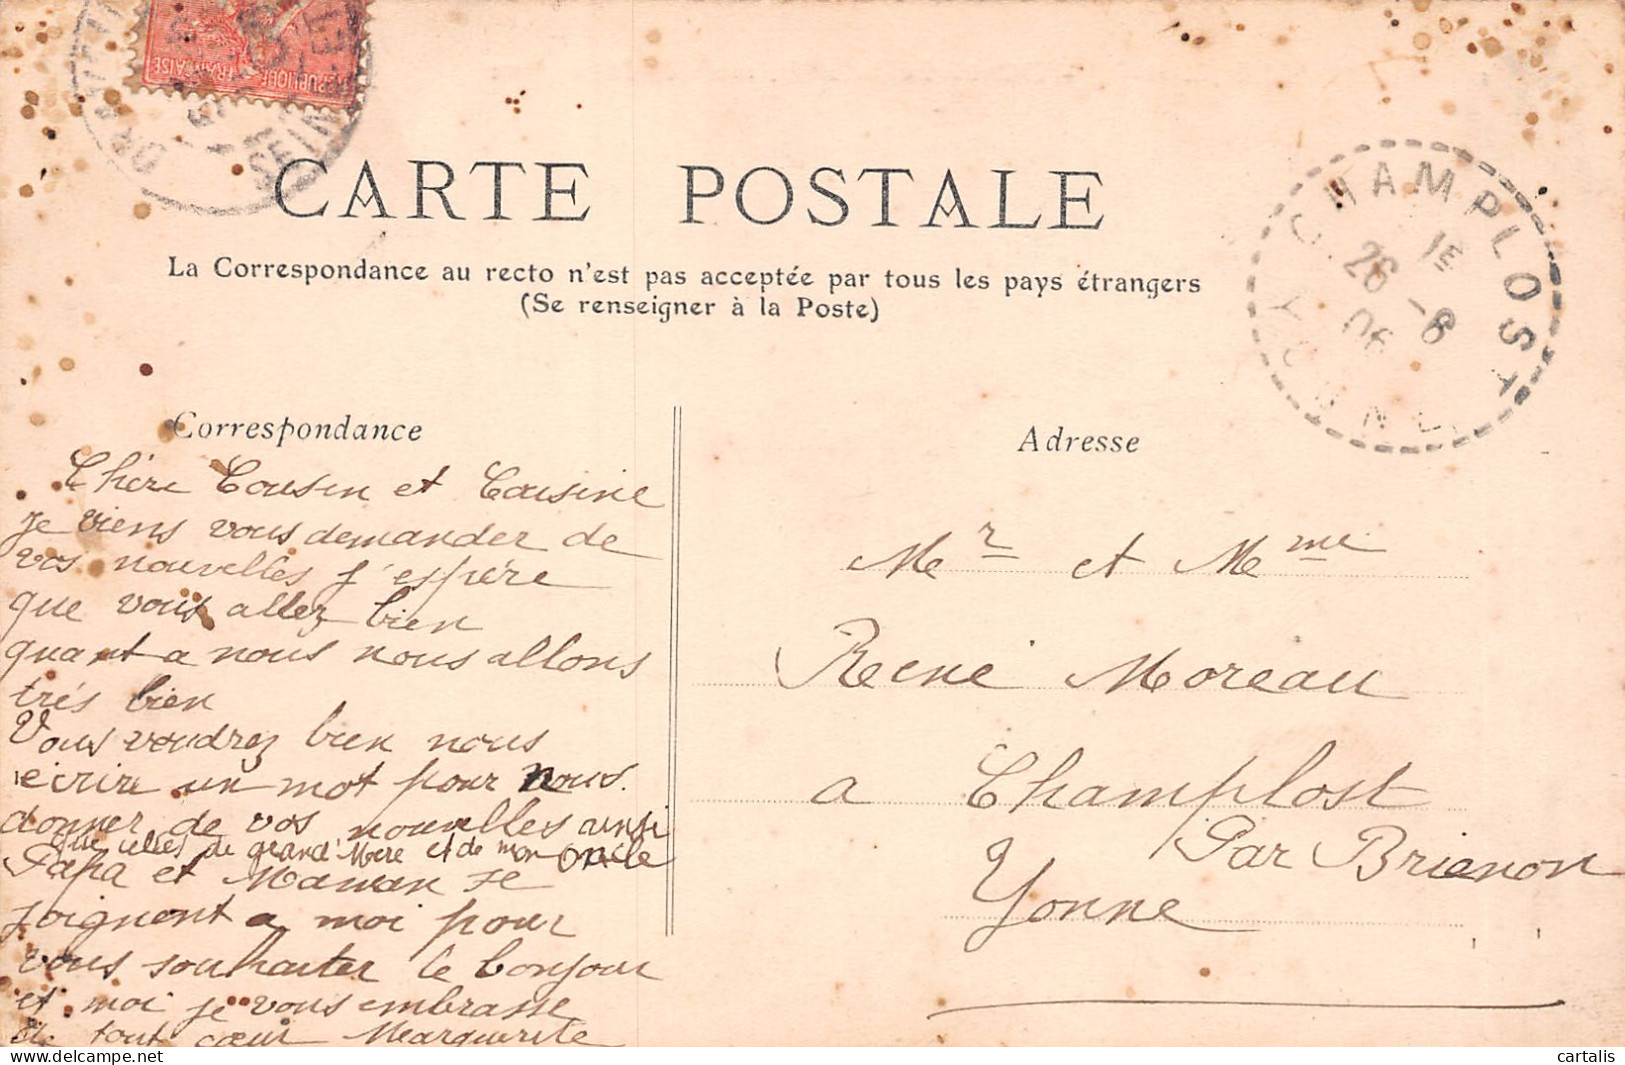 RÉPUBLIQUE FRANÇAISE
SEINE
CARTE POSTALE
La Correspondance au recto n'est pas acceptée par tous les pays étrangers
(Se renseigner à la Poste)
CHAMPLOST
1E
26 -8
06
YONNE
Correspondance
Chère Cousin et Cousine
je viens vous demander de
vos nouvelles j'espère
que vous allez bien
quant a nous nous allons
trés bien
Vous voudrez bien nous
écrire un mot pour nous
donner de vos nouvelles ainsi
que celles de grand'Mère et de mon oncle
Papa et Maman se
joignent a moi pour
vous souhaiter le bonjour
et moi je vous embrasse
de tout cœur Marguerite
Adresse
Mr et Mme
Réené Moreau
a Champlost
Par Brienon
Yonne
cartalis